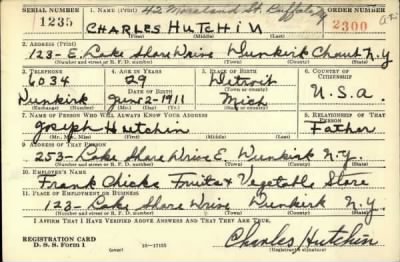 SERIAL NUMBER 1. NAME (Print) 42 Moreland St. Buffalo ORDER NUMBER
1235 CHARLES HUTCHIN 2300
(First) (Middle) (Last)
2. ADDRESS (Print)
123- E. Lake Shore Drive Dunkirk Chaut N.Y.
(Number and street or R. F. D. number) (Town) (County) (State)
3. TELEPHONE 4. AGE IN YEARS 5. PLACE OF BIRTH 6. COUNTRY OF CITIZENSHIP
6034 29 Detroit
DATE OF BIRTH (Town or county)
Dunkirk June-2-1911 Mich U.S.A.
(Exchange) (Number) (Mo.) (Day) (Yr.) (State or country)
7. NAME OF PERSON WHO WILL ALWAYS KNOW YOUR ADDRESS 8. RELATIONSHIP OF THAT PERSON
Joseph Hutchin Father
(Mr., Mrs., Miss) (First) (Middle) (Last)
9. ADDRESS OF THAT PERSON
253- Lake Shore Drive E. Dunkirk N.Y.
(Number and street or R. F. D. number) (Town) (County) (State)
10. EMPLOYER'S NAME
Frank Fruits & Vegetable Store
11. PLACE OF EMPLOYMENT OR BUSINESS
123- Lake Shore Drive Dunkirk N.Y.
(Number and street or R. F. D. number) (Town) (County) (State)
I AFFIRM THAT I HAVE VERIFIED ABOVE ANSWERS AND THAT THEY ARE TRUE.
REGISTRATION CARD
D. S. S. Form 1 (over) 16-17105 Charles Hutchin
(Registrant's signature)